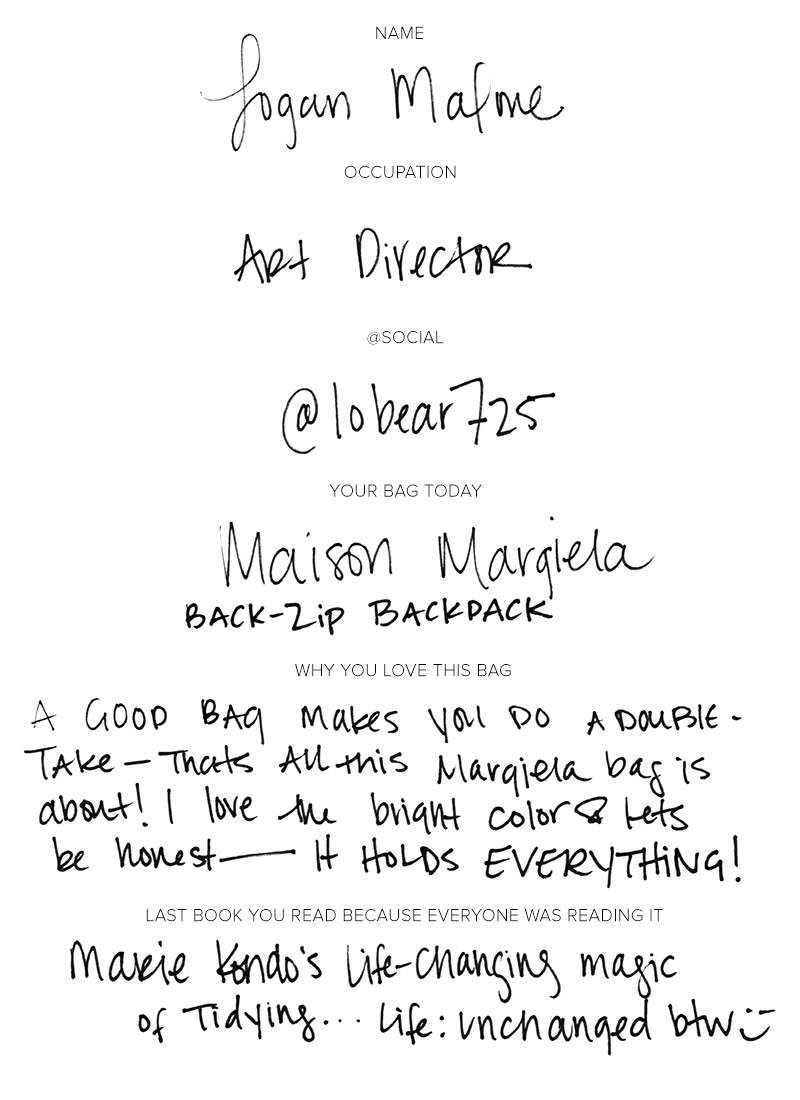 NAME
Logan Malone
OCCUPATION
Art Director
@SOCIAL
@lobear725
YOUR BAG TODAY
Maison Margiela
BACK-Zip BACKPACK
WHY YOU LOVE THIS BAG
A GOOD BAG MAKES YOU DO A DOUBLE-
TAKE — Thats All this Margiela bag is
about! I love the bright color & Lets
be honest — It HOLDS EVERYTHING!
LAST BOOK YOU READ BECAUSE EVERYONE WAS READING IT
Marie Kondo's Life-changing magic
of Tidying... Life: unchanged btw :)